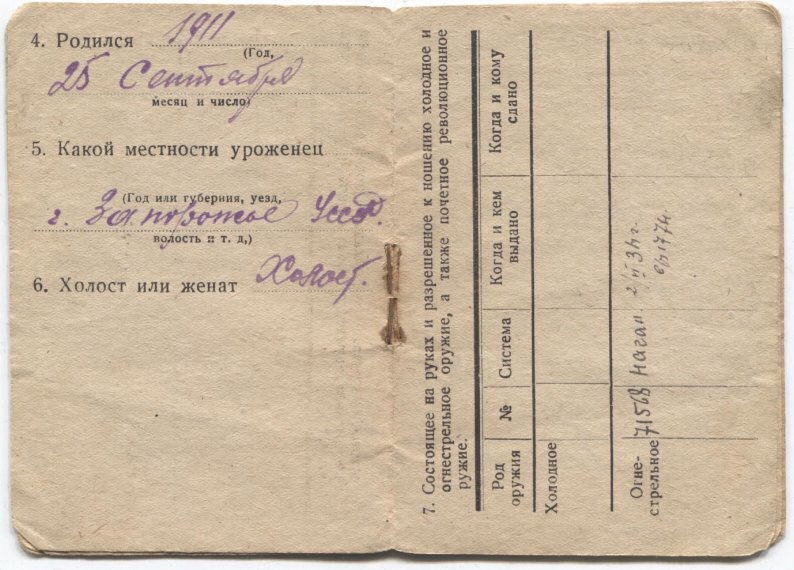 4. Родился 1911
(Год,
25 Сентября
месяц и число)
5. Какой местности уроженец
(Год или губерния, уезд,
г. Запорожье Усср.
волость и т. д,)
6. Холост или женат Холост.
7. Состоящее на руках и разрешенное к ношению холодное и
огнестрельное оружие, а также почетное революционное
ружие.
Род оружия № Система Когда и кем выдано Когда и кому сдано
Холодное
Огне-стрельное 71568 Наган 2/II 34 г.